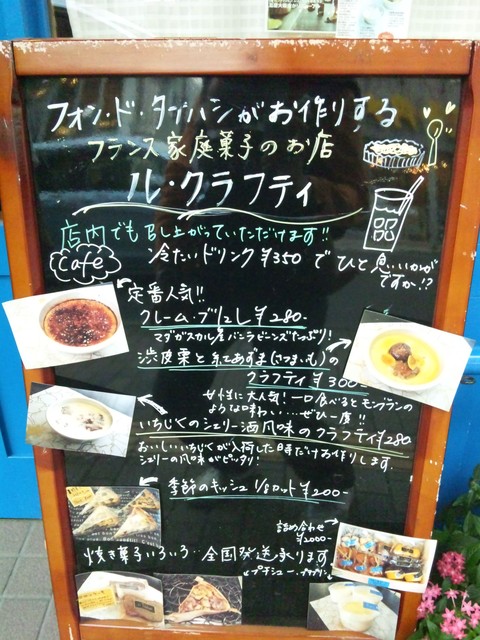 フォン・ド・タブハシがお作りする
フランス家庭菓子のお店
ル・クラフティ
店内でも召し上がっていただけます!!
cafe
冷たいドリンク¥350でひと息いかがですか!?
定番人気!!
クレーム・ブリュレ¥280-
マダガスカル産バニラビーンズたっぷり!
渋皮栗と紅あずま(さつまいも)の
クラフティ¥300-
女性に大人気!一口食べるとモンブランの
ような味わい…ぜひ一度!!
いちじくのシェリー酒風味のクラフティ¥280
おいしいいちじくが入荷した時だけお作りします。
シェリーの風味がピッタリ!
季節のキッシュ 1/8カット¥200-
詰め合わせ
¥2000-
焼き菓子いろいろ…全国発送承ります
プチシュー・